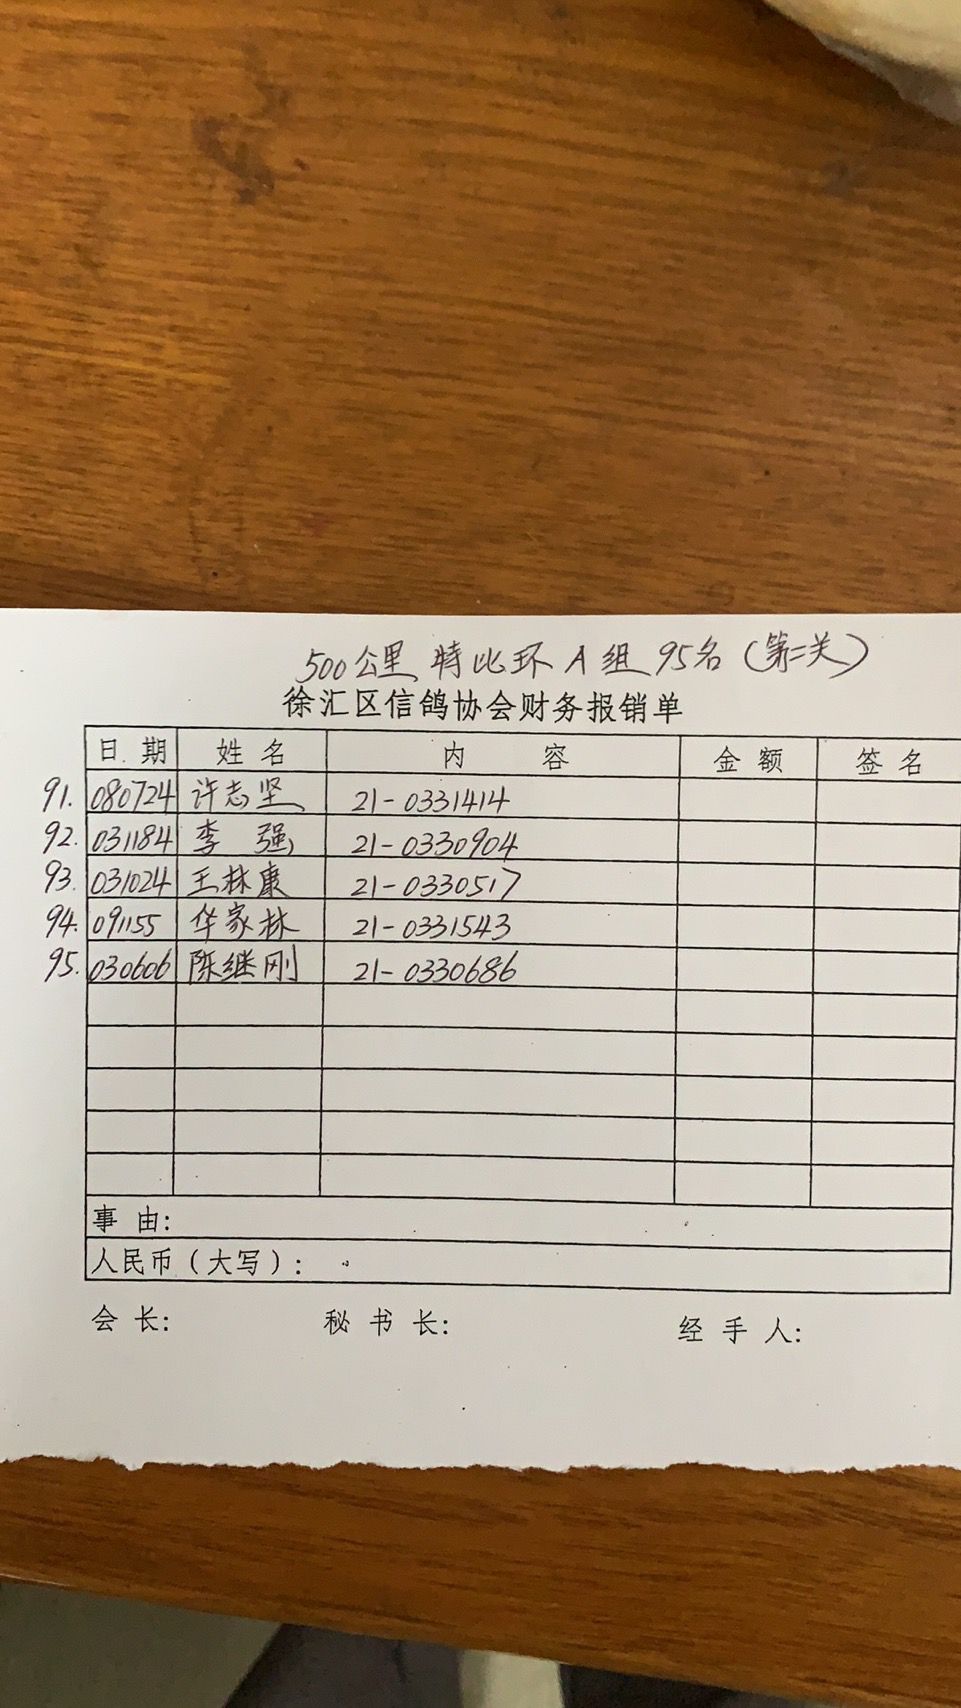 500公里 特比环 A组 95名（第二关）
徐汇区信鸽协会财务报销单
日 期 姓 名 内 容 金 额 签 名
91. 080724 许志坚 21-0331414
92. 031184 李 强 21-0330904
93. 031024 王林康 21-0330517
94. 091155 华家林 21-0331543
95. 030606 陈继刚 21-0330686
事 由:
人民币（大写）:
会 长: 秘 书 长: 经 手 人: